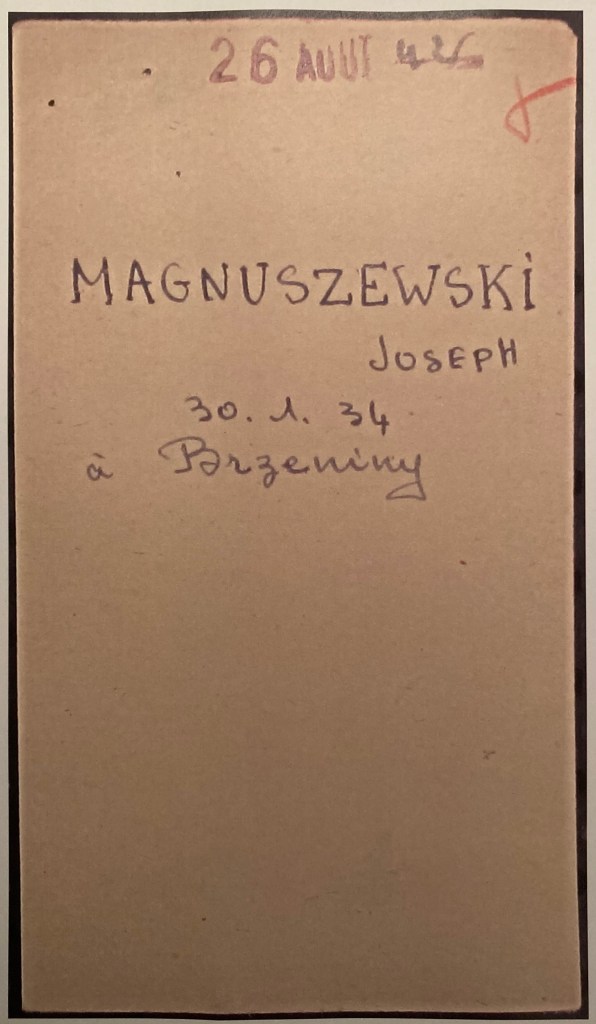 26 AOUT 42
MAGNUSZEWSKI
JOSEPH
30. 1. 34
à Brzeniny